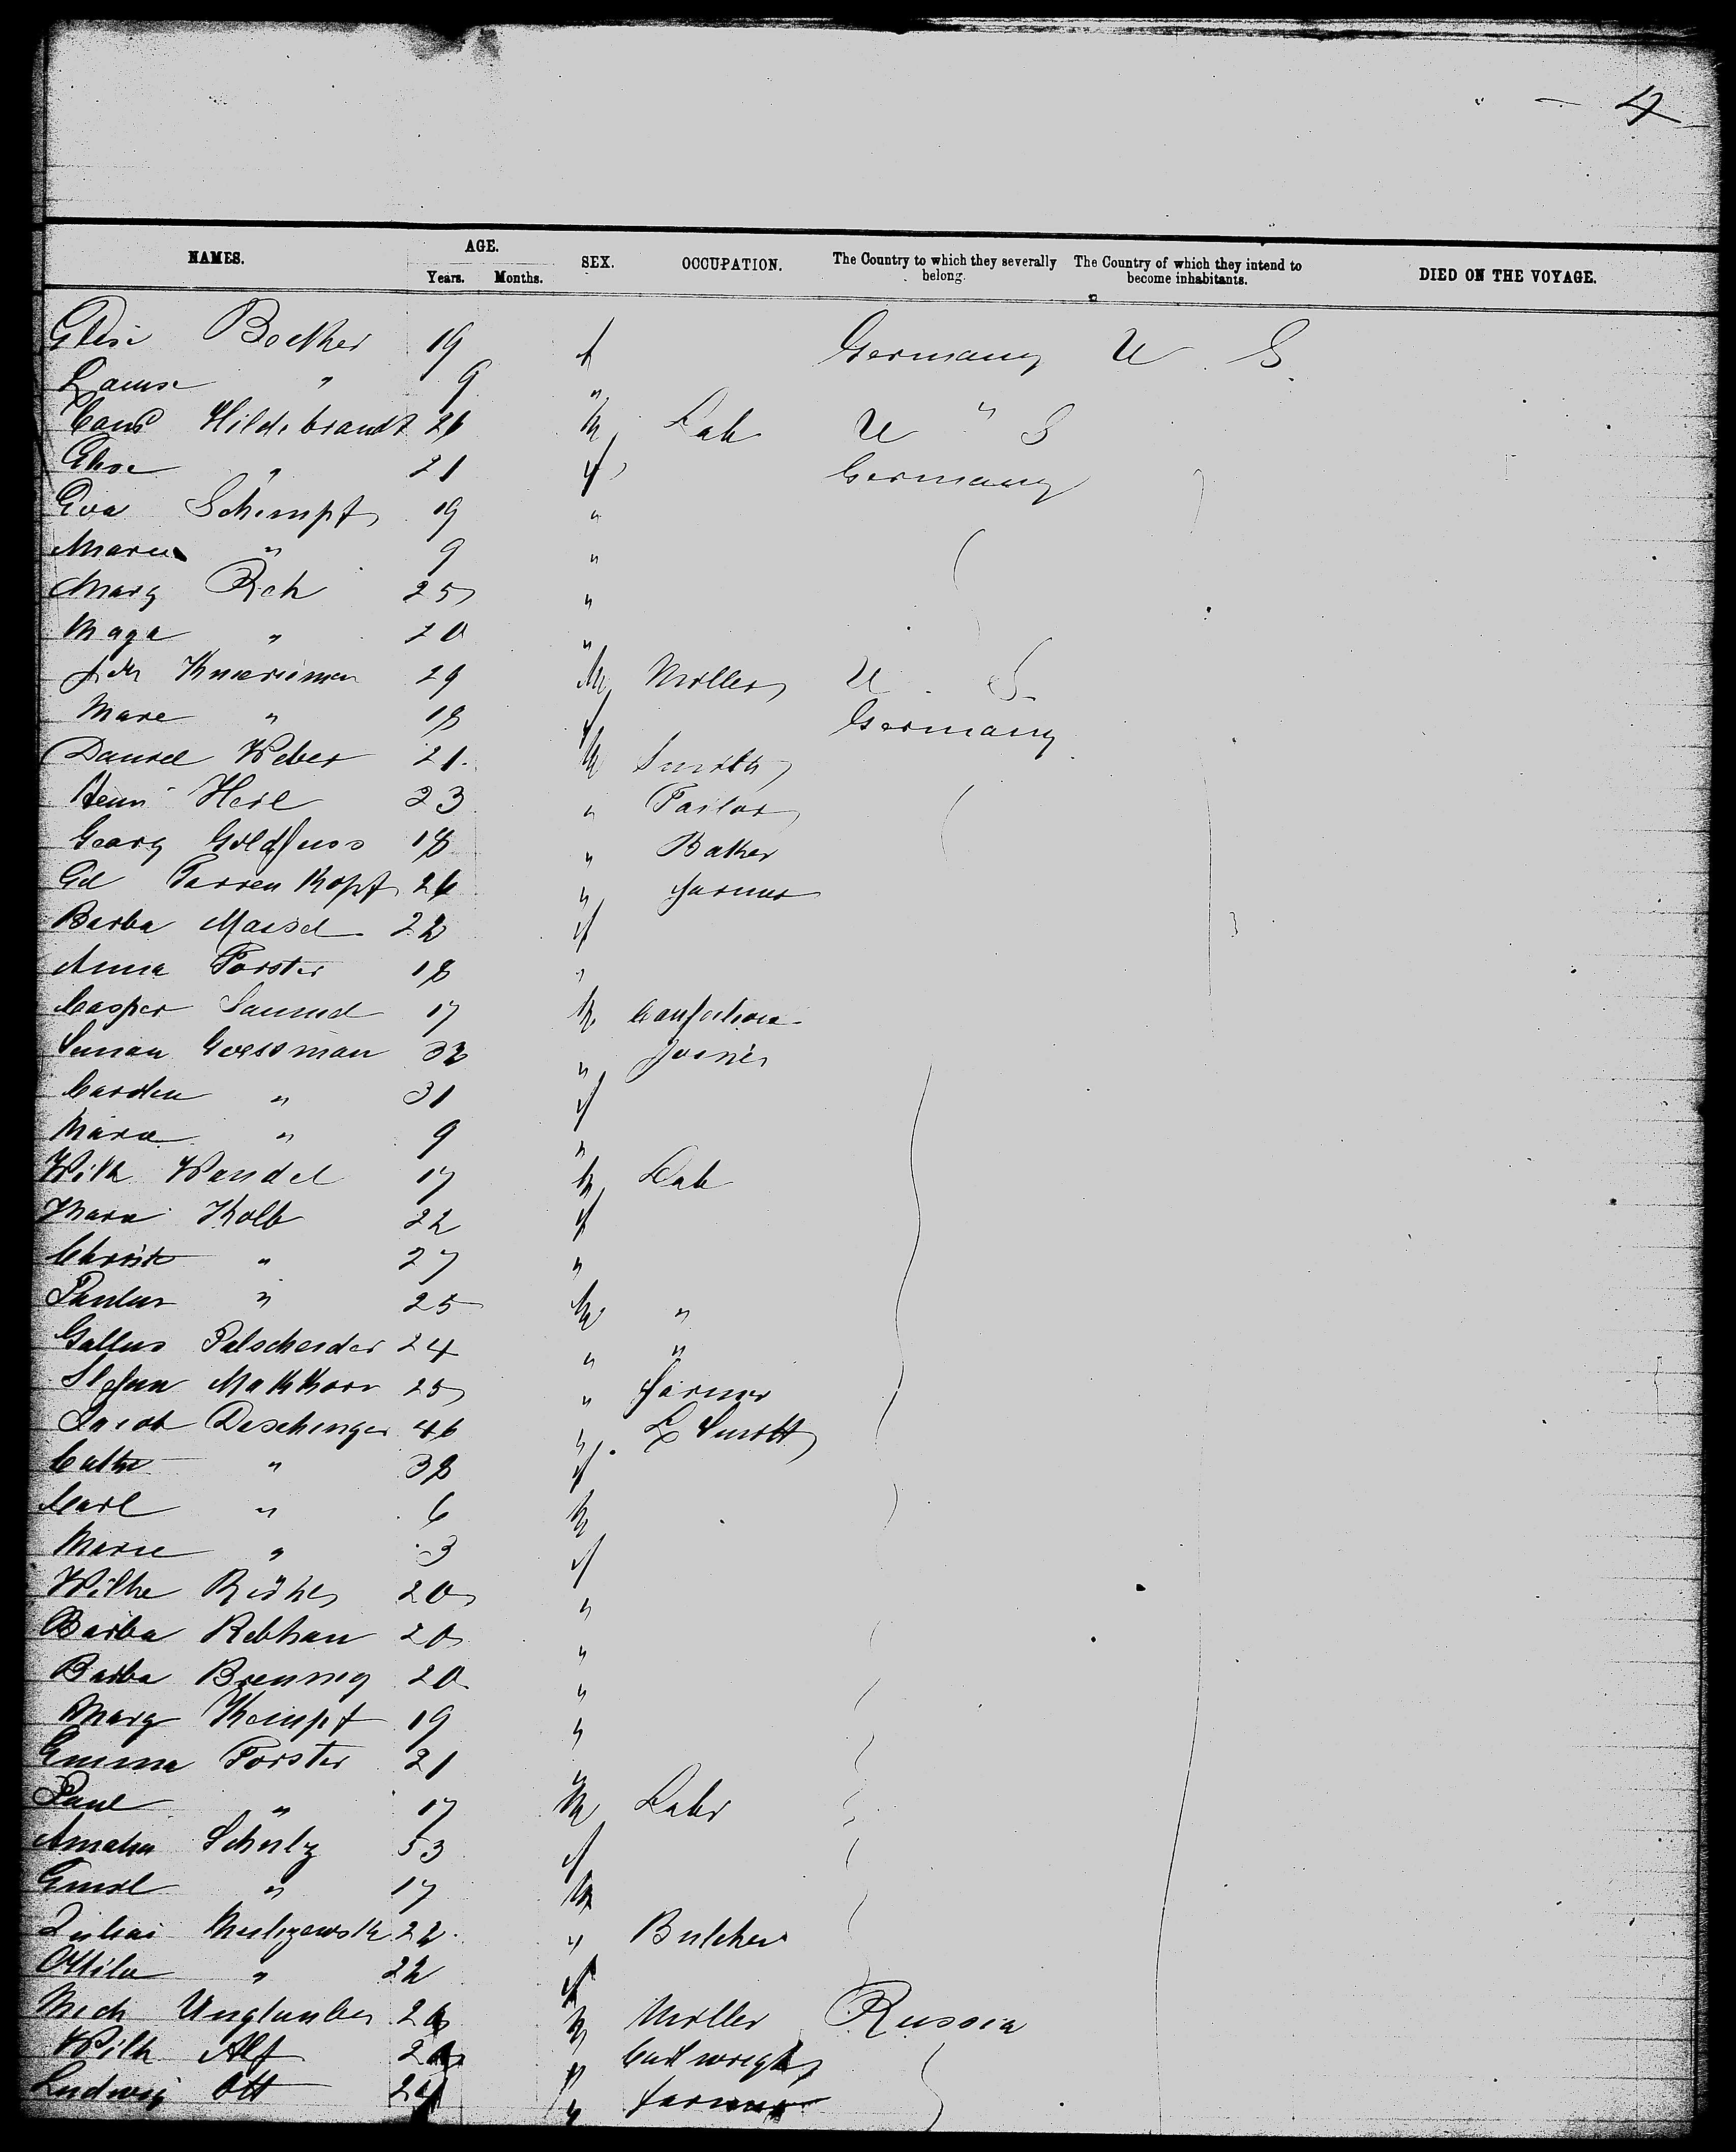 4
NAMES. AGE. Years. Months. SEX. OCCUPATION. The Country to which they severally belong. The Country of which they intend to become inhabitants. DIED ON THE VOYAGE.
Elise Becker 19 f Germany U S
" 9 "
Hildebrandt 26 m Lab U " S
Elise " 21 f Germany
Eva Schimpf 19 "
Marie " 9 "
Marg Reh 25 "
" 20 "
29 m Miller U S
Marie " 18 f Germany
Daniel Weber 21 m Smith
Henri Heil 23 " Tailor
Georg Goldfuss 18 " Baker
Ed 26 " farmer
Barba Maisel 22 f
Anna Forster 18 "
Casper 17 m
Simon Goessman 32 " Joiner
" 31 f
Maria " 9 "
Wilh Wandel 17 m Lab
Maria Kolb 22 f
Christ " 27 "
" 25 m "
Gallus 24 " "
25 " farmer
Jacob Deschinger 46 " L Smith
Cathe " 38 f
Carl " 6 m
Marie " 3 f
Wilhe 20 "
Barba Rebhan 20 "
Barba Brennig 20 "
Marg Kempf 19 "
Emma Forster 21 "
Paul " 17 m Labr
Amalia Schulz 53 f
Emil " 17 m
22 " Butcher
Ottilie " 22 f
Mich m Miller Russia
Wilh Alf " Cartwright
Ludwig Ott 24 " farmer